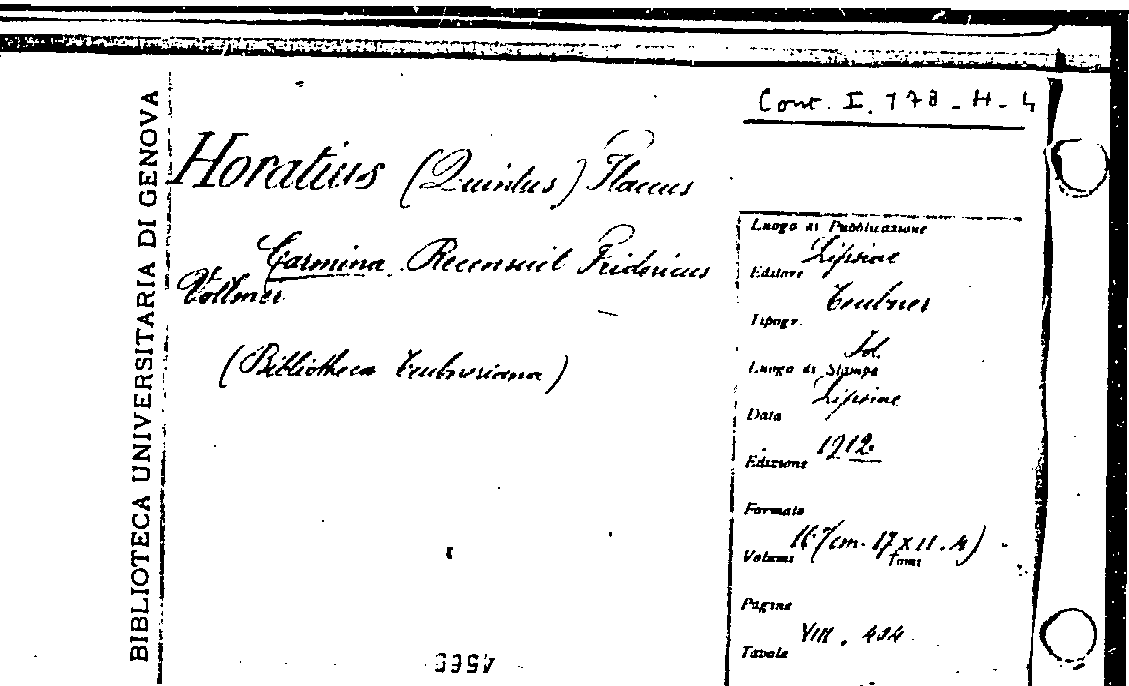 Cont. I. 178-H-4
BIBLIOTECA UNIVERSITARIA DI GENOVA
Horatius (Quintus) Flaccus
Carmina. Recensuit Fridericus
Vollmer
(Bibliotheca Teubneriana)
Luogo di Pubblicazione
Lipsiae
Editore
Teubner
Tipogr.
Id.
Luogo di Stampa
Lipsiae
Data
1912
Edizione
Formato
16° (cm. 17 x 11.4)
Volumi Tomi
Pagine
VIII.
Tavole